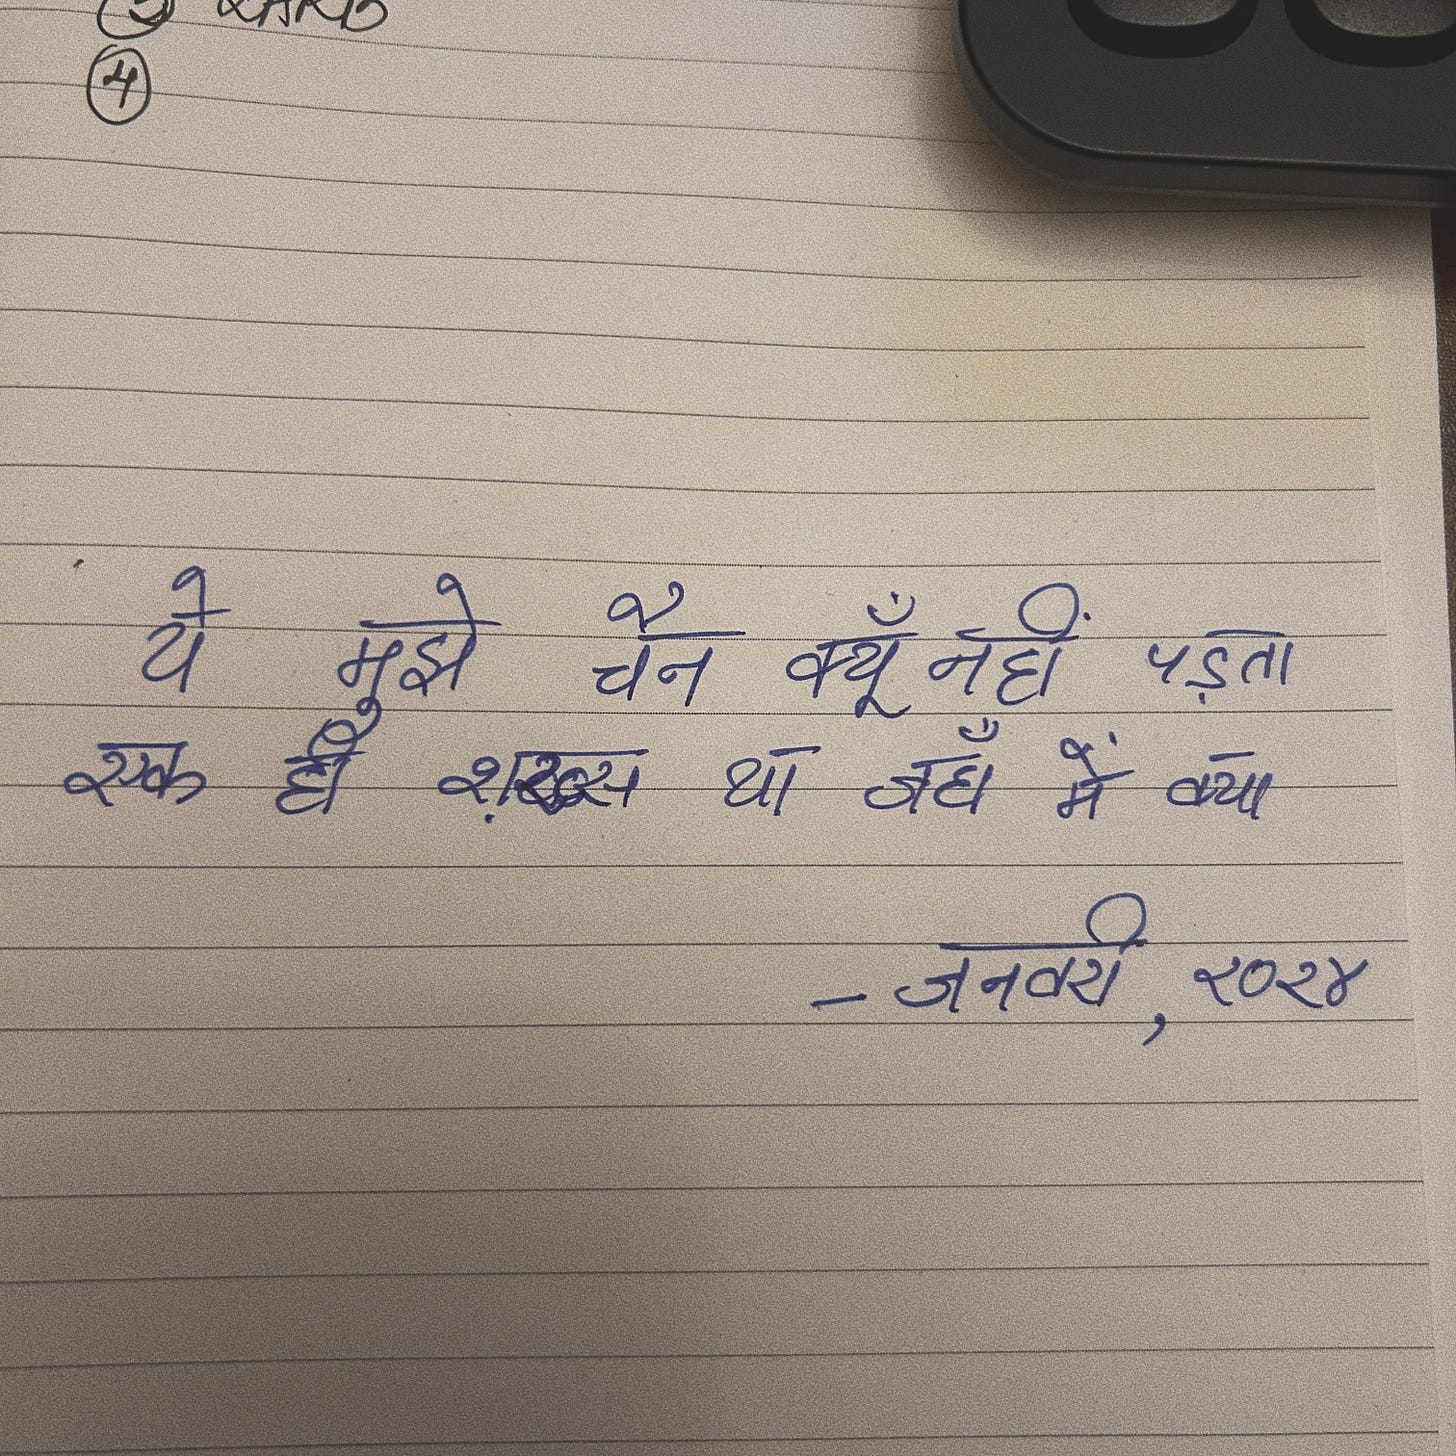 ④
ये मुझे चैन क्यूँ नहीं पड़ता
एक ही शख़्स था जहाँ में क्या
- जनवरी, २०२४